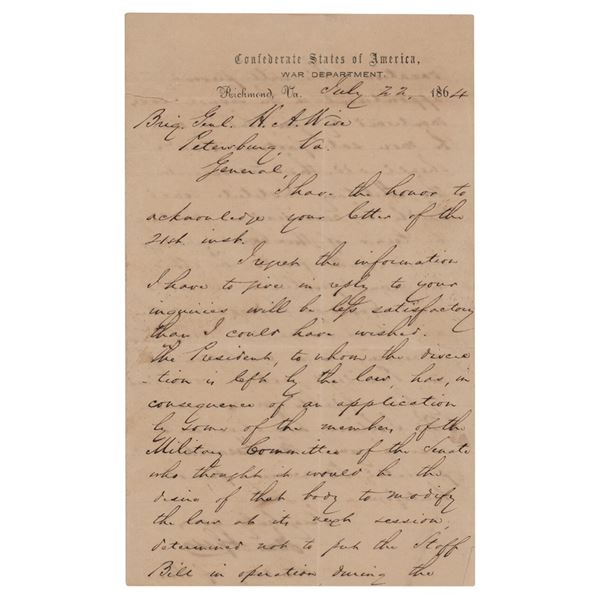 Confederate States of America,
WAR DEPARTMENT.
Richmond, Va. July 22, 1864
Brig. Genl. H. A. Wise
Petersburg, Va.
General,
I have the honor to
acknowledge your letter of the
21st inst.
I regret the information
I have to give in reply to your
inquiries will be less satisfactory
than I could have wished.
The President, to whom the discre
-tion is left by the law, has, in
consequence of an application
by some of the members of the
Military Committee of the Senate
who thought it would be the
desire of that body to modify
the law at its next session,
determined not to put the Staff
Bill in operation during the